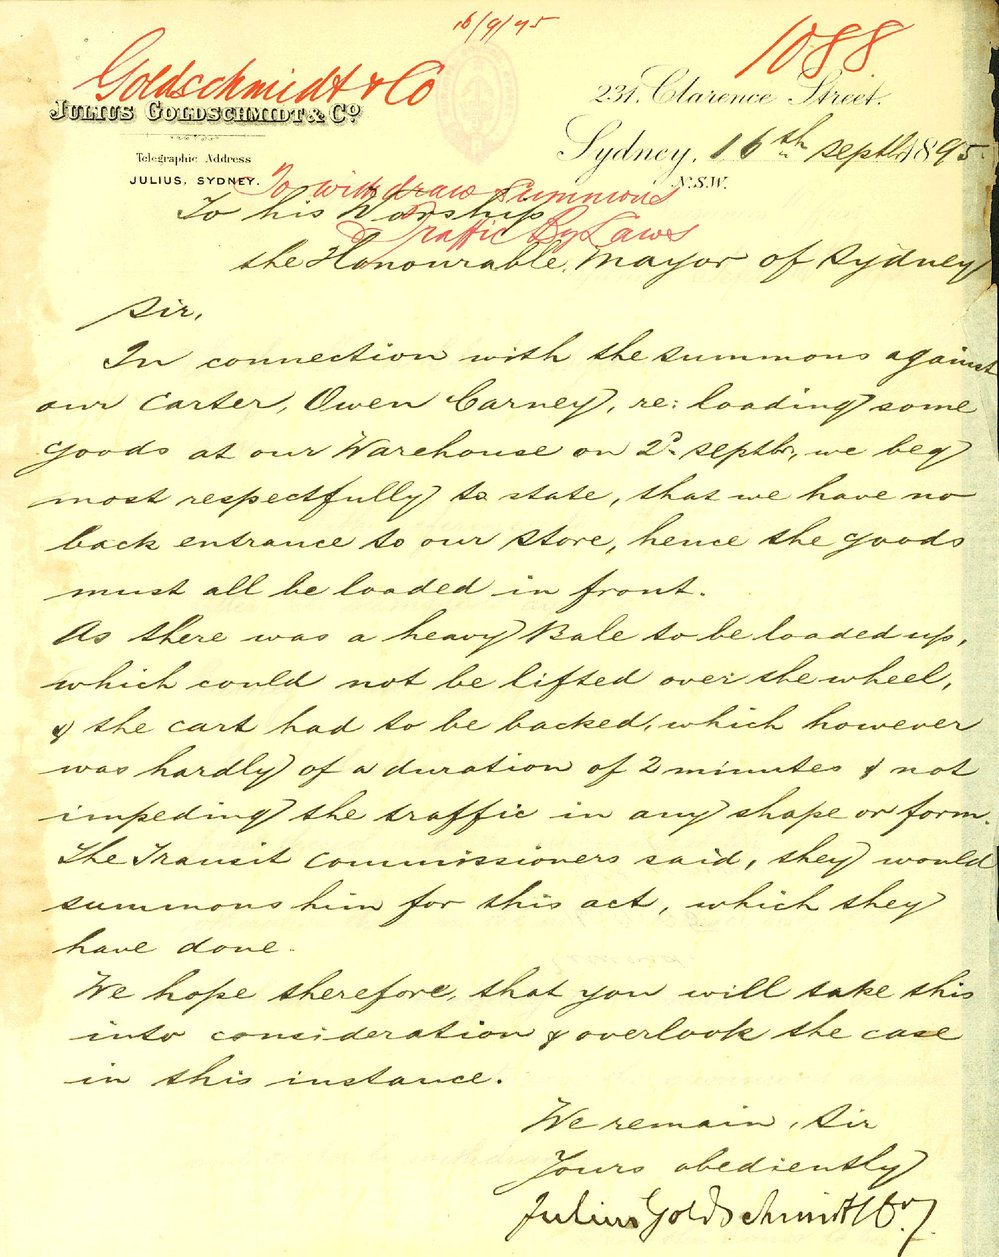 16/9/95
1088
Goldschmidt & Co
JULIUS GOLDSCHMIDT & Co.
231, Clarence Street.
Telegraphic Address
JULIUS, SYDNEY.
Sydney, 16th septbr 1895.
N.S.W.
To withdraw summons
Traffic By Laws
To his Worship
the Honourable, Mayor of Sydney
Sir,
In connection with the summons against
our carter, Owen Carney, re: loading some
goods at our Warehouse on 2d septbr, we beg
most respectfully to state, that we have no
back entrance to our store, hence the goods
must all be loaded in front.
As there was a heavy Bale to be loaded up,
which could not be lifted over the wheel,
& the cart had to be backed, which however
was hardly of a duration of 2 minutes & not
impeding the traffic in any shape or form.
The Transit Commissioners said, they would
summons him for this act, which they
have done.
We hope therefore, that you will take this
into consideration & overlook the case
in this instance.
We remain, Sir
Yours obediently
Julius Goldschmidt & Co.